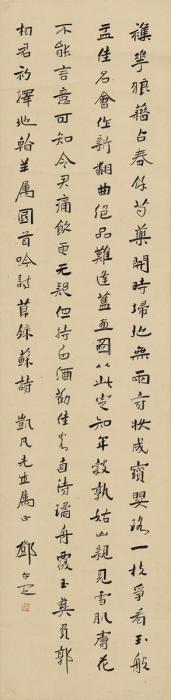 襍華狼藉占春餘芍藥開時掃地無兩寺妝成寶瓔珞一枝爭看玉般
盂佳名會作新翻曲絕品難逢舊畫圖从此定知年穀孰姑山親見雪肌膚花
不能言意可知令君痛飲更无疑但持白酒勸佳客直待璚舟覆玉彝負郭
相君初擇地看羊屬國首吟詩 錄蘇詩 凱凡先生屬正 鄧尔疋